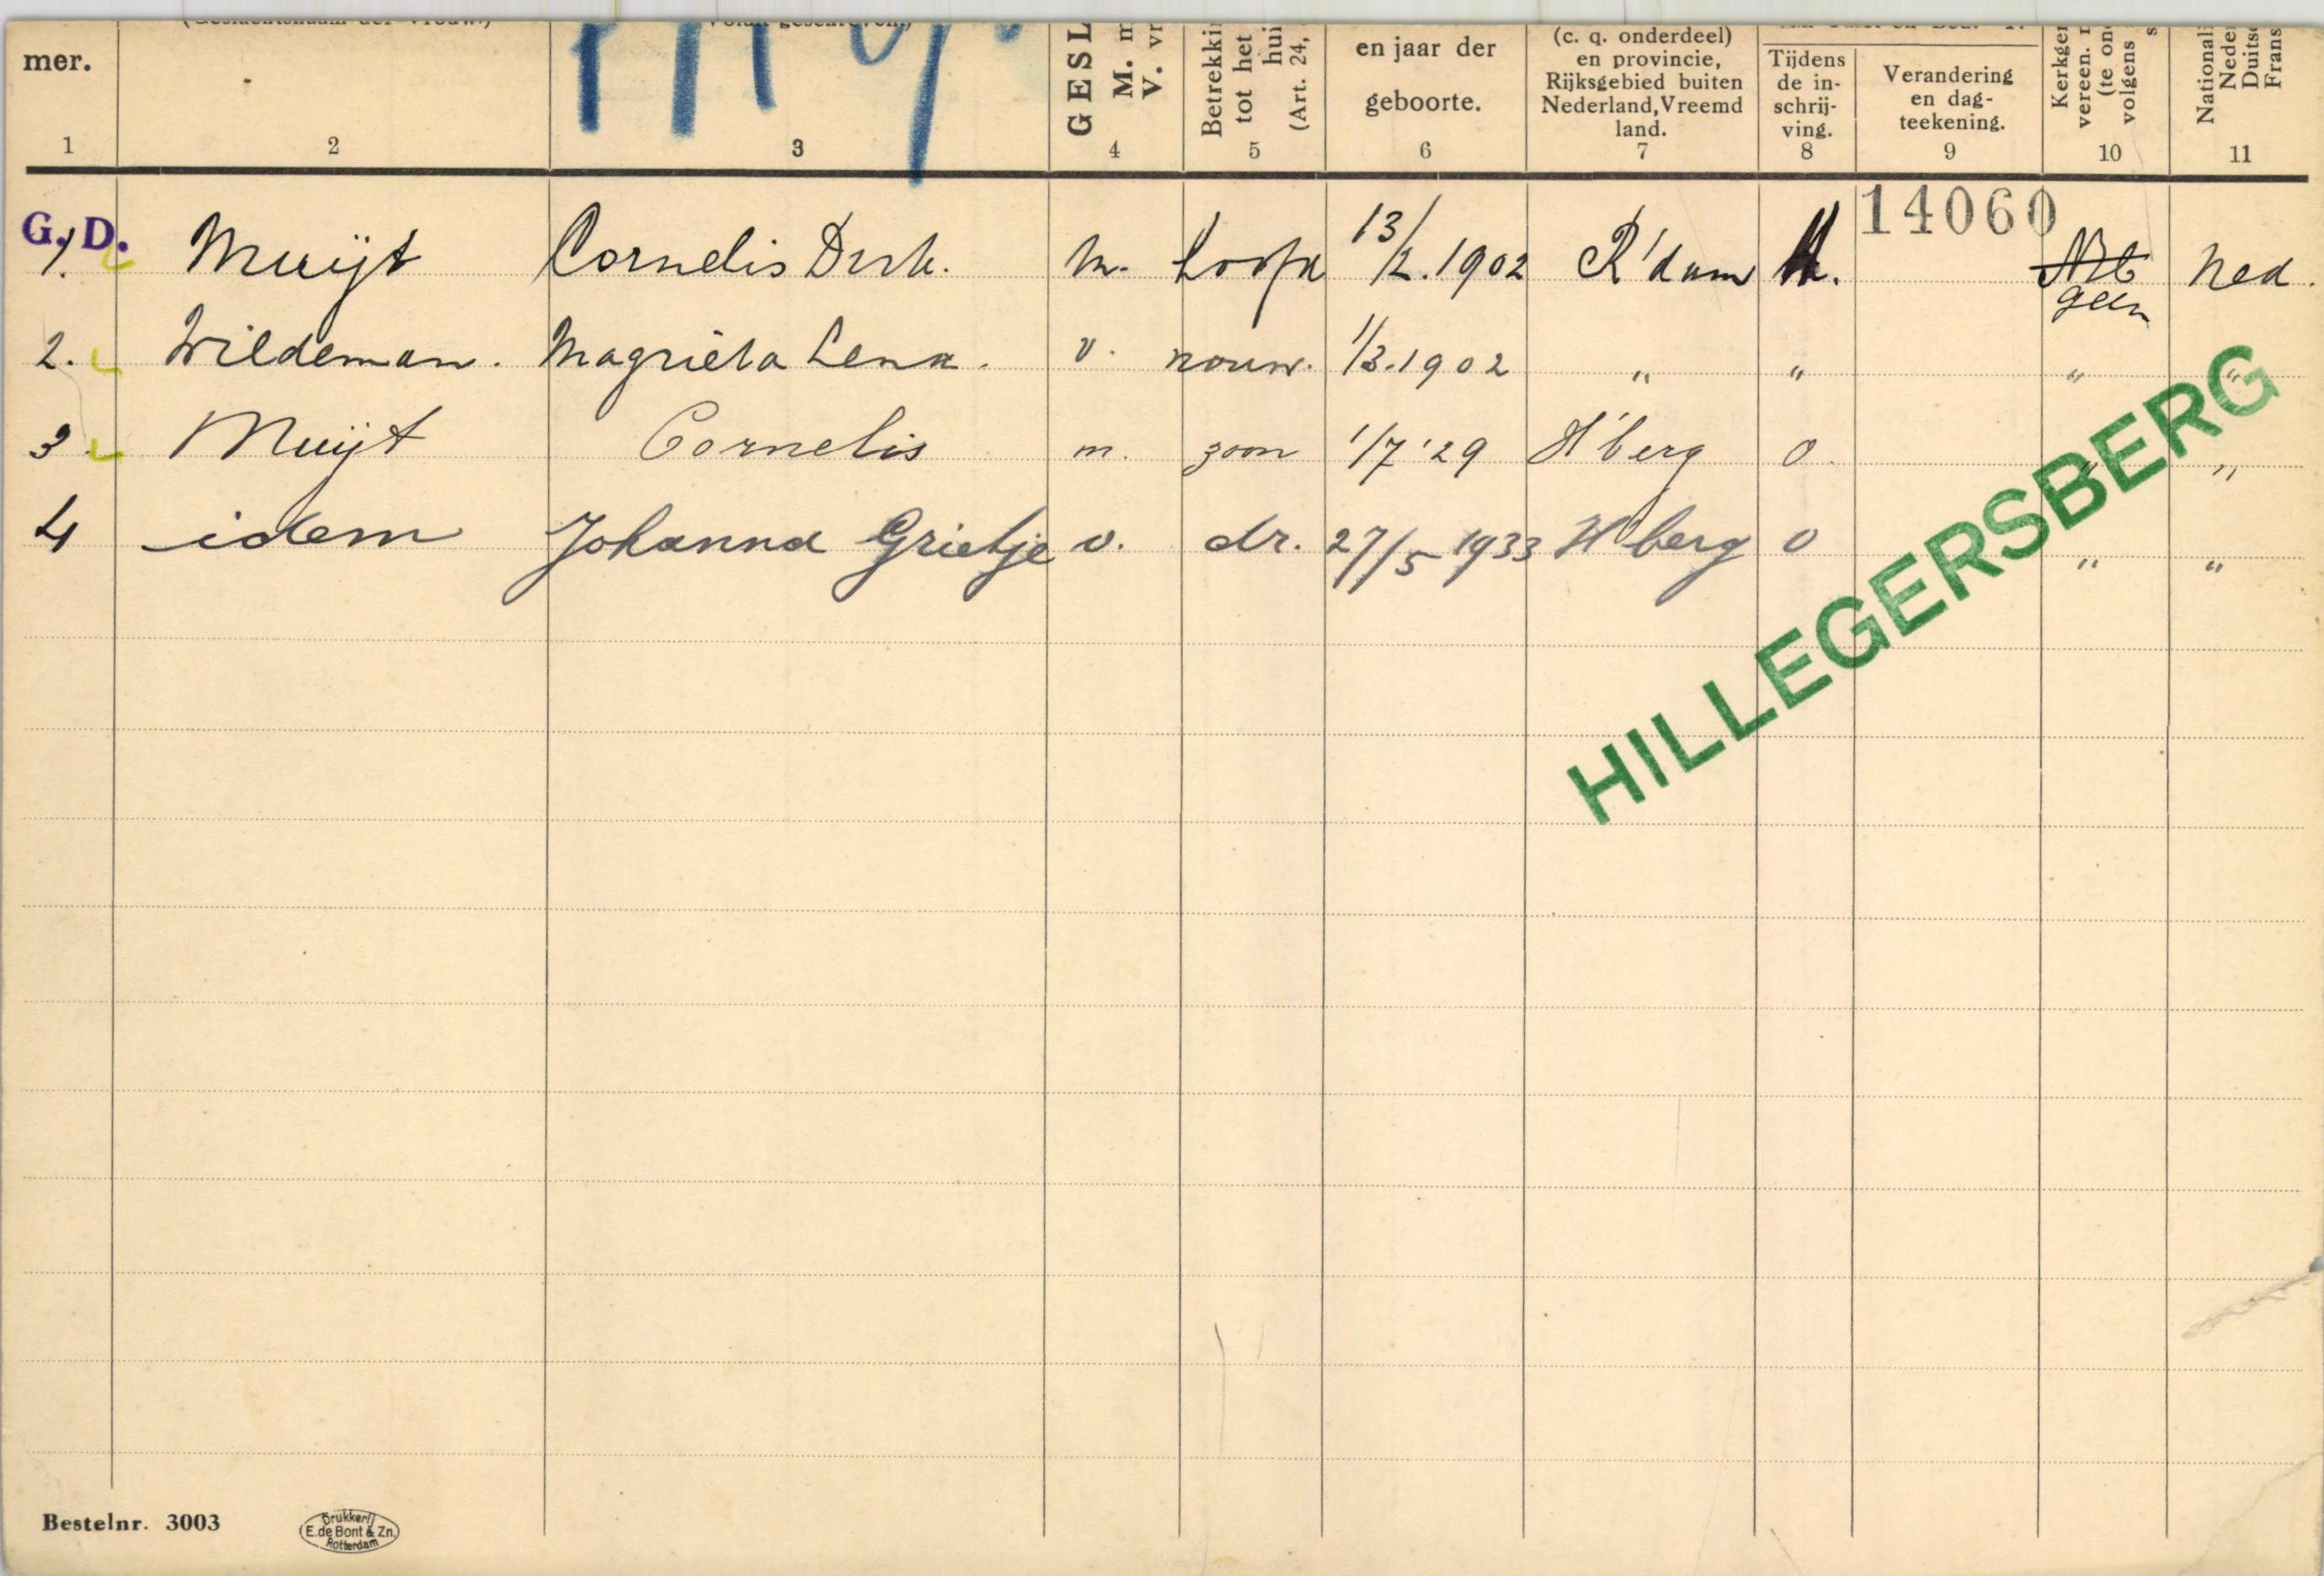 mer.
GESL
M. m
V. vr
Betrekki
tot het
hui
(Art. 24,
en jaar der
geboorte.
(c. q. onderdeel)
en provincie,
Rijksgebied buiten
Nederland, Vreemd
land.
Tijdens
de in-
schrij-
ving.
Verandering
en dag-
teekening.
Kerkge
vereen.
(te on
volgens
Nationali
Neder
Duits
Frans
1 2 3 4 5 6 7 8 9 10 11
14060
G. D.
1. Muijt Cornelis Dirk. m. hoofd 13/2.1902 R'dam geen Ned.
2. Wildeman. Magrieta Lena. v. vrouw. 1/3.1902 " " " "
3. Muijt Cornelis m. zoon 1/7 '29 H'berg O. " "
4 idem Johanna Grietje v. dr. 27/5 1933 H'berg O " "
HILLEGERSBERG
Bestelnr. 3003
Drukkerij
E. de Bont & Zn.
Rotterdam